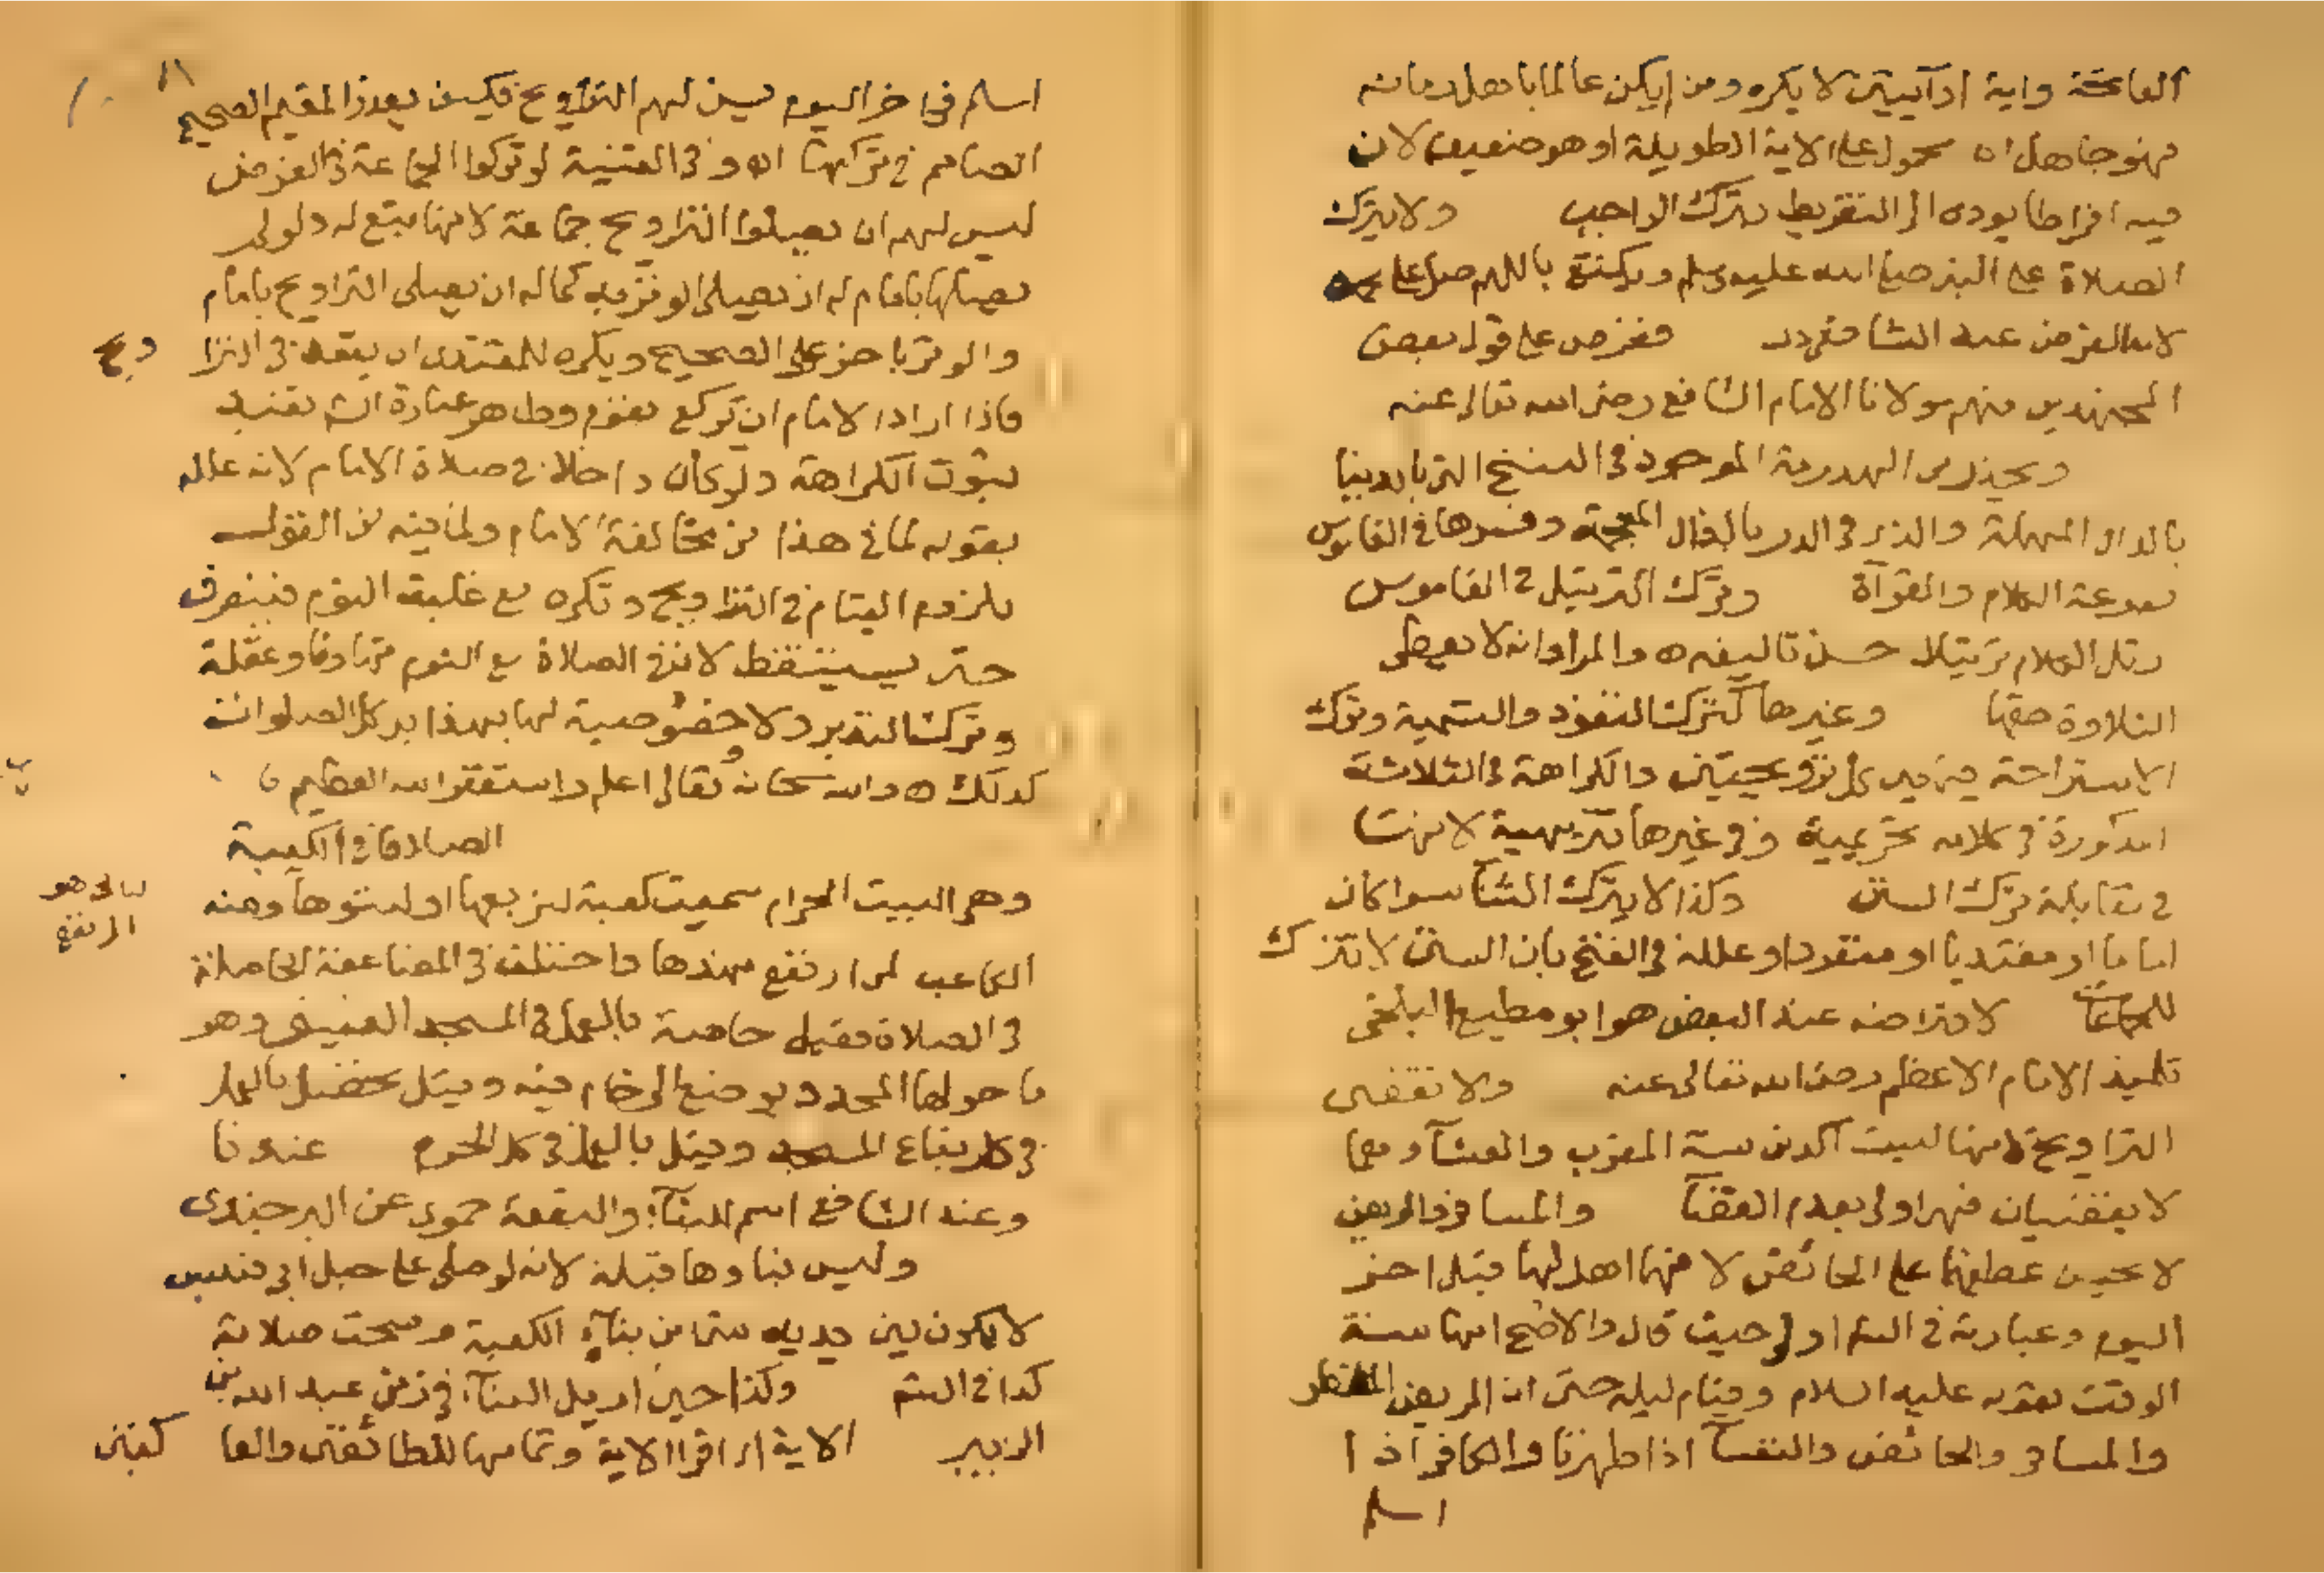 الفاتحة واية او آيتين لا يكره ومن لم يكن عالما باهل زمانه
فهو جاهل اه محمول على الاية الطويلة او هو ضعيف لان
فيه افراطا يوده الى التفريط بترك الواجب ولا يترك
الصلاة على النبي صلى الله عليه وسلم ويكتفي باللهم صل على
لانها فرض عند الشافعي ففرض على قول بعض
المجتهدين منهم مولانا الامام الشافعي رضي الله تعالى عنه
ويحذر من الهدرمة الموجود في النسخ التي بايدينا
بالدال المهملة والذي في الدر بالذال المعجمة وفسرها في القاموس
بسرعة الكلام والقرآة وترك الترتيل في القاموس
رتل الكلام ترتيلا حسن تاليفه اه والمراد انه لا يعطي
التلاوة حقها وغيرها كترك التعوذ والتسمية وترك
الاستراحة فيما بين كل ترويحتين والكراهة في الثلاثة
المذكورة في كلامه تحريمية وفي غيرها تنزيهية لانها
في مقابلة ترك السنن وكذا لا يترك الثنآ سوا كان
اماما او مقتديا او منفردا وعلله في الفتح بان السنن لا تترك
للجماعات لافتراضه عند البعض هو ابو مطيع البلخي
تلميذ الامام الاعظم رضي الله تعالى عنه ولا تقضى
التراويح لانها ليست آكد من سنة المغرب والعشآ وهما
لا يقضيان فهي اولى بعدم القضآ والمسافر والمريض
لا يحسن عطفهما على الحائض لانهما اهل لها قبل اخر
اليوم وعبارته في الشم اولى حيث قال والاصح انها سنة
الوقت بقوله عليه السلام وقيام ليله حتى ان المريض المفطر
والمسافر والحائض والنفسآ اذا طهرتا والكافر اذا
اسلم
اسلم في اخر اليوم يسن لهم التراويح فكيف يعذر المقيم الصحيح
الصائم في تركها اه وفي القنية لو تركوا الجماعة في الفرض
ليس لهم ان يصلوا التراويح جماعة لانها تبع له ولو لم
يصلها بامام له ان يصلي الوتر به كما له ان يصلي التراويح بامام
والوتر باخر على الصحيح ويكره للمقتدي ان يقعد في التراويح
فاذا اراد الامام ان يركع يقوم وظاهر عبارة الشم تفيد
ثبوت الكراهة ولو كان داخلا في صلاة الامام لانه علله
بقوله لما في هذا من مخالفة الامام ولما فيه من القول
بلزوم القيام في التراويح وتكره مع غلبة النوم فينصرف
حتى يستيقظ لان في الصلاة مع النوم تهاونا وغفلة
وترك التدبر ولا خصوصية لها بهذا بل كل الصلوات
كذلك اه والله سبحانه وتعالى اعلم واستغفر الله العظيم
الصلاة في الكعبة
وهي البيت الحرام سميت كعبة لتربعها او لنتوها ومنه
الكاعب لمن ارتفع نهدها واختلف في المضاعفة الحاصلة
في الصلاة فقيل خاصة بالعمل في المسجد العتيق وهو
ما حولها المحدود بوضع الرخام فيه وقيل تحصل بالعمل
في كل بقاع المسجد وقيل بالعمل في كل الحرم عندنا
وعند الشافعي اسم للبنآء والبقعة حموي عن البرجندي
وليس بناوها قبلة لانه لو صلى على جبل ابي قبيس
لا يكون بين يديه شيء من بنآء الكعبة وصحت صلاته
كذا في الشم وكذا حين ازيل البنآء في زمن عبد الله بن
الزبير الاية اي اقرا الاية وتمامها للطائفين والعاكفين